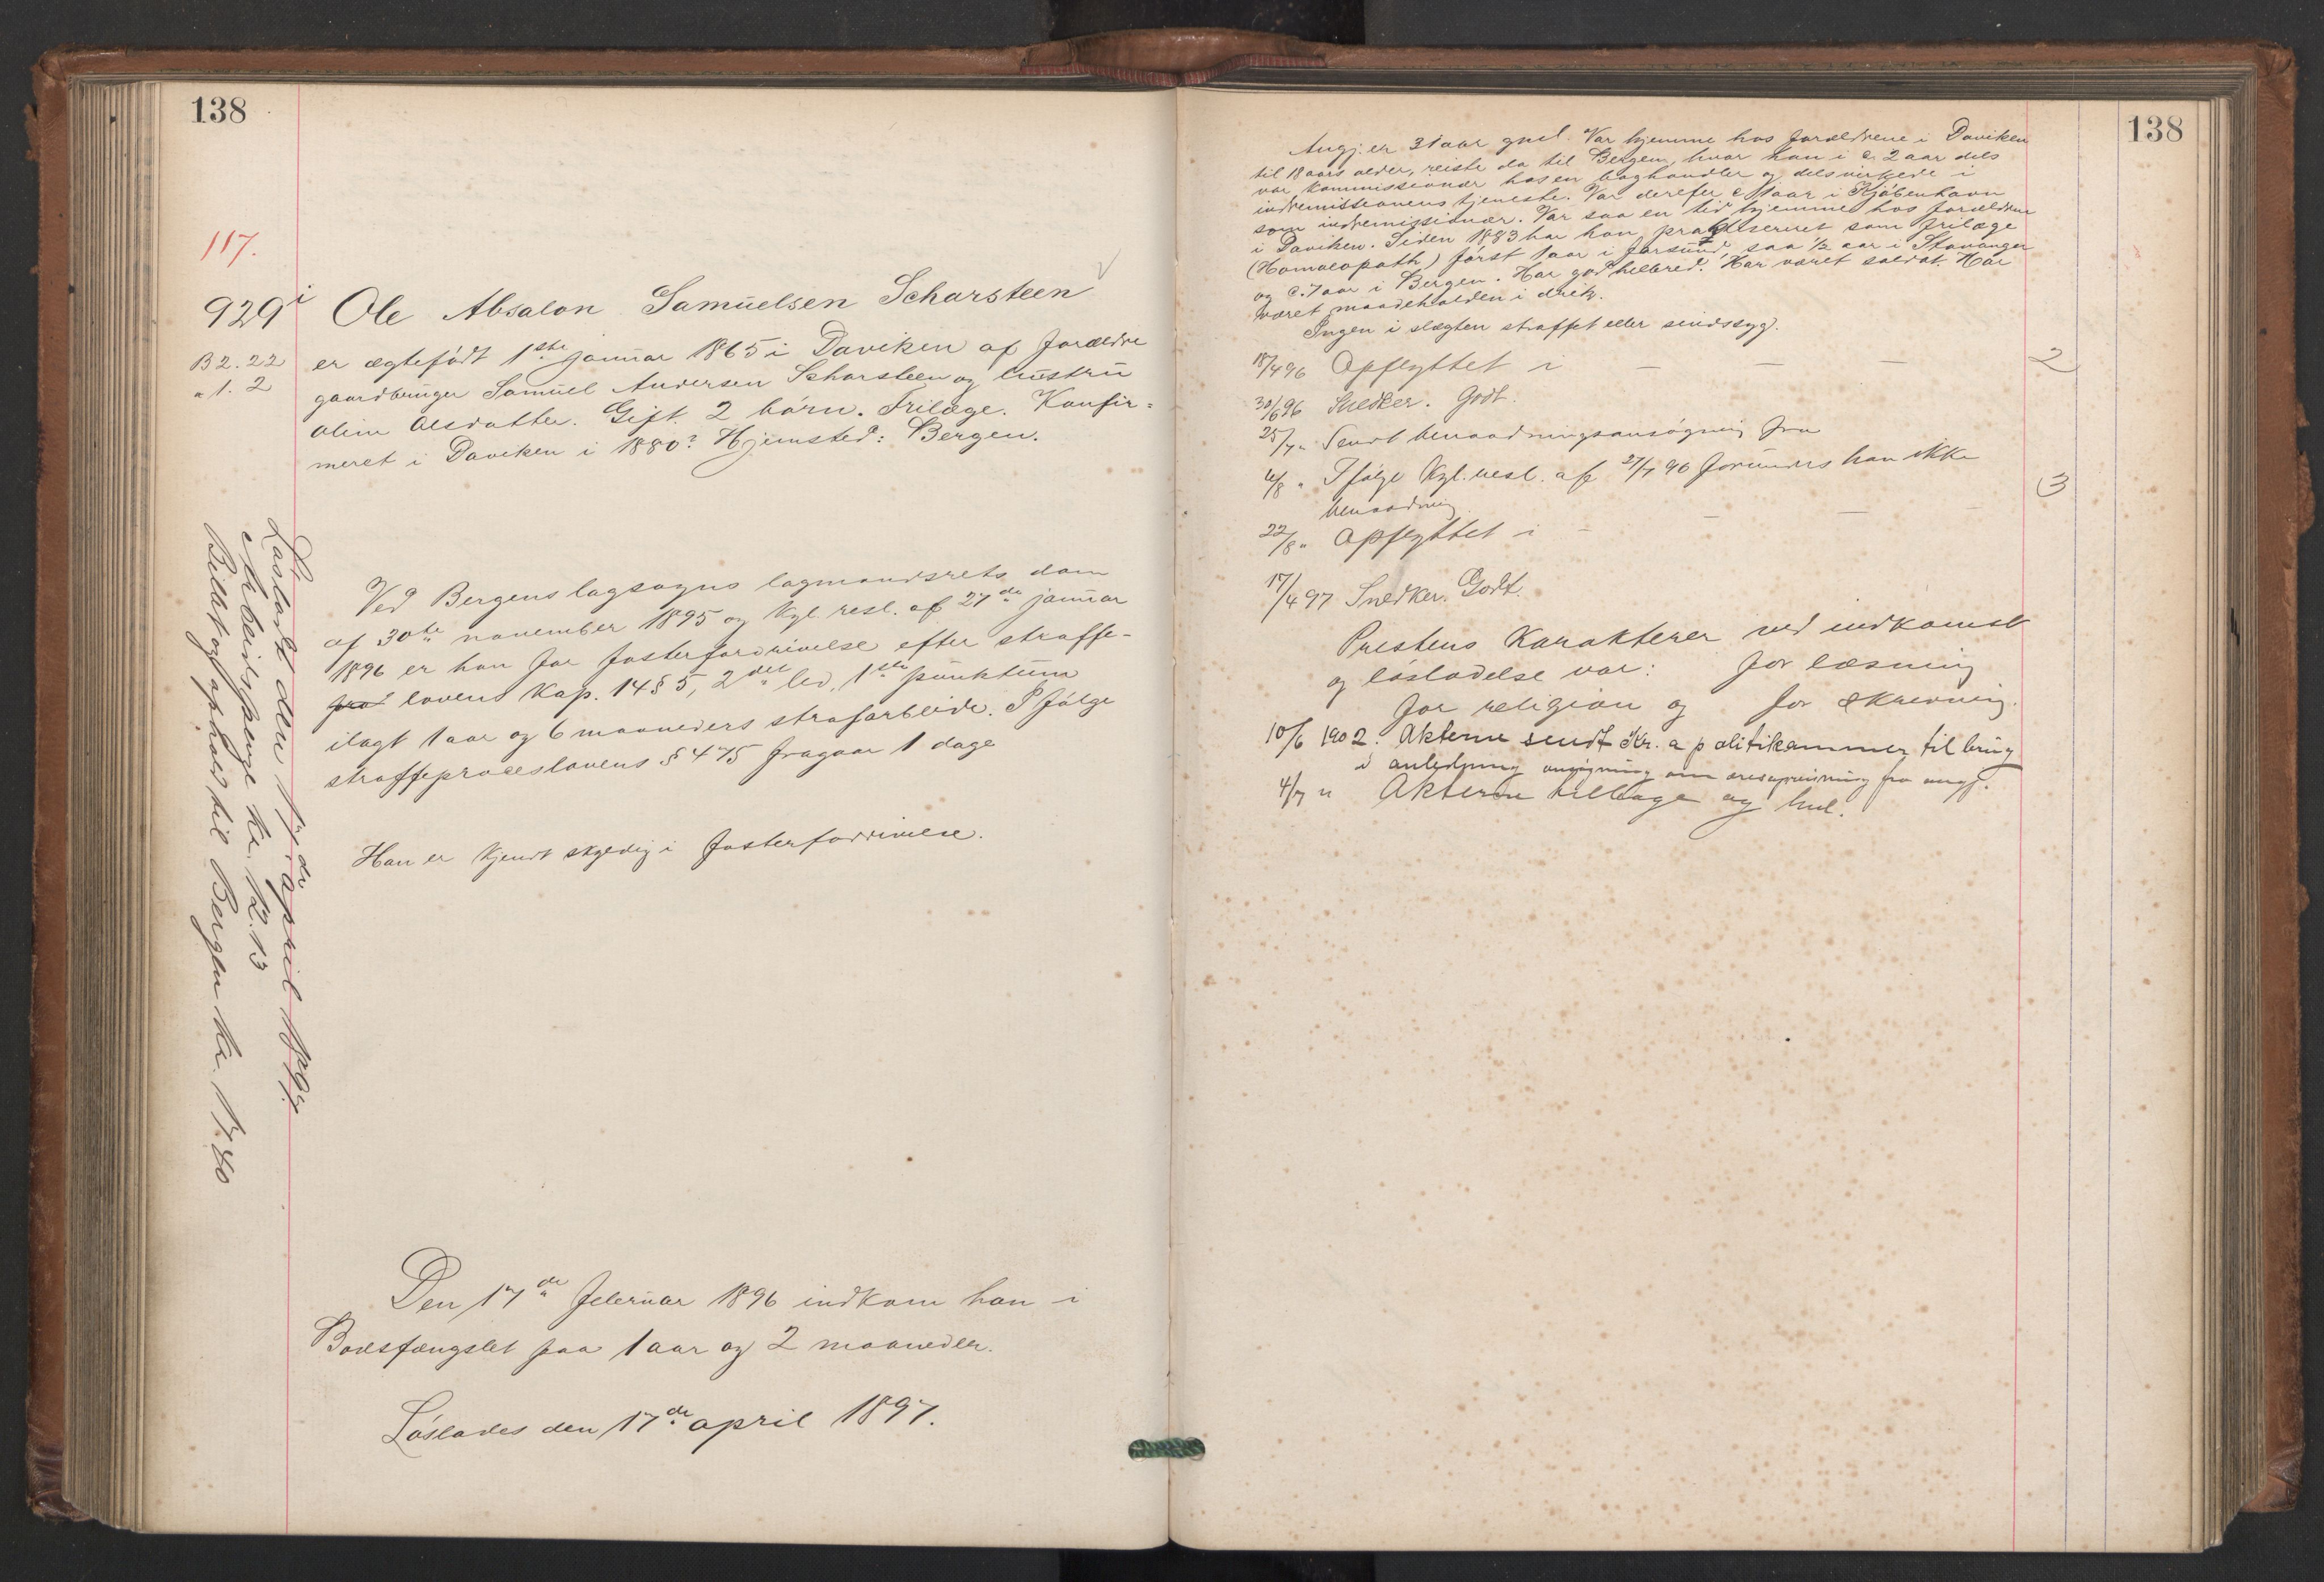 138
117.
929 i Ole Absalon Samuelsen Scharsteen
B 2. 22 er ægtefødt 1ste januar 1865 i Daviken af forældre
" 1. 2 gaardbruger Samuel Andersen Scharsteen og hustru
Oline Olsdatter. Gift. 2 børn. Frilæge. Konfir-
meret i Daviken i 1880? Hjemsted: Bergen.
Ved Bergens lagsogns lagmandsrets dom
af 30te november 1895 og kgl. resl. af 27de januar
1896 er han for fosterfordrivelse efter straffe-
lovens Kap. 14 § 5, 2det led, 1ste punktum
ilagt 1 aar og 6 maaneders strafarbeide. I følge
straffeproceslovens § 475 fragaar 1 dage
Han er kjendt skyldig i fosterfordrivelse.
Den 17de februar 1896 indkom han i
Bodsfængslet paa 1 aar og 2 maaneder.
Løslades den 17de april 1897.
Løsladt den 17de april 1897
Arbeidspenge kr. 12.13
Billet og ophold til Bergen kr. 17.80
138
Angj. er 31 aar gml. Var hjemme hos forældrene i Daviken
til 18 aars alder, reiste da til Bergen, hvor han i c. 2 aar dels
var kommissionær hos en boghandler og dels virkede i
indremissionens tjeneste. Var derefter c. 1 aar i Kjøbenhavn
som indremissionær. Var saa en tid hjemme hos forældrene
i Daviken. Siden 1883 har han praktiseret som frilæge
(Homøopath) først 1 aar i Farsund, saa ½ aar i Stavanger
og c. 7 aar i Bergen. Har god helbred. Har været soldat. Har
været maadeholden i drik.
Ingen i slægten straffet eller sindssyg.
18/4 96 Opflyttet i — — 2
30/6 96 Snedker. Godt.
25/7 " Sendt benaadningsansøgning fra
4/8 " Ifølge Kgl. resl. af 27/7 96 forundes han ikke
benaadning.
22/8 " Opflyttet i - — — 3
17/4 97 Snedker. Godt.
Prestens Karakterer ved indkomst
og løsladelse var: for læsning
for religion og for skrivning.
10/6 1902. Akterne sendt Kr.a politikammer til brug
i anledning ansøgning om æresopreisning fra angj.
4/7 " Akterne tilbage og hul.